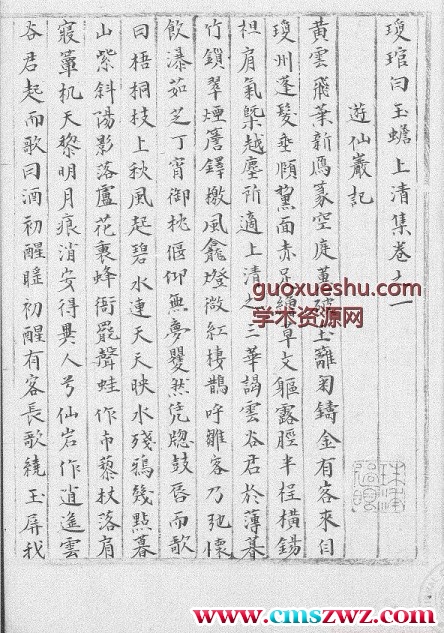 瓊琯白玉蟾上清集卷之一
遊仙巖記
黃雲飛葉新鴈篆空庭蕙破玉籬菊鑄金有客來自
瓊州蓬髮垂頤黧面赤足草文軀露脛半裎橫錫
袒肩氣槩越塵所適上清之三華謁雲谷君於薄暮
竹鎖翠煙簷鐸檄風龕燈微紅棲鵲呼雛客乃弛懷
飲瀑茹芝丁宵御枕偃仰無夢矍然凭牕鼓唇而歌
曰梧桐枝上秋風起碧水連天天映水殘鴉幾點暮
山紫斜陽影落蘆花裏蜂衙罷聲蛙作市藜杖落肩
寢簟机天黎明月痕消安得異人兮仙岩作逍遙雲
谷君起而歌曰酒初醒睡初醒有客長歌繞玉屏我
guoxueshu.com
学术资源网
www.cmszwz.com